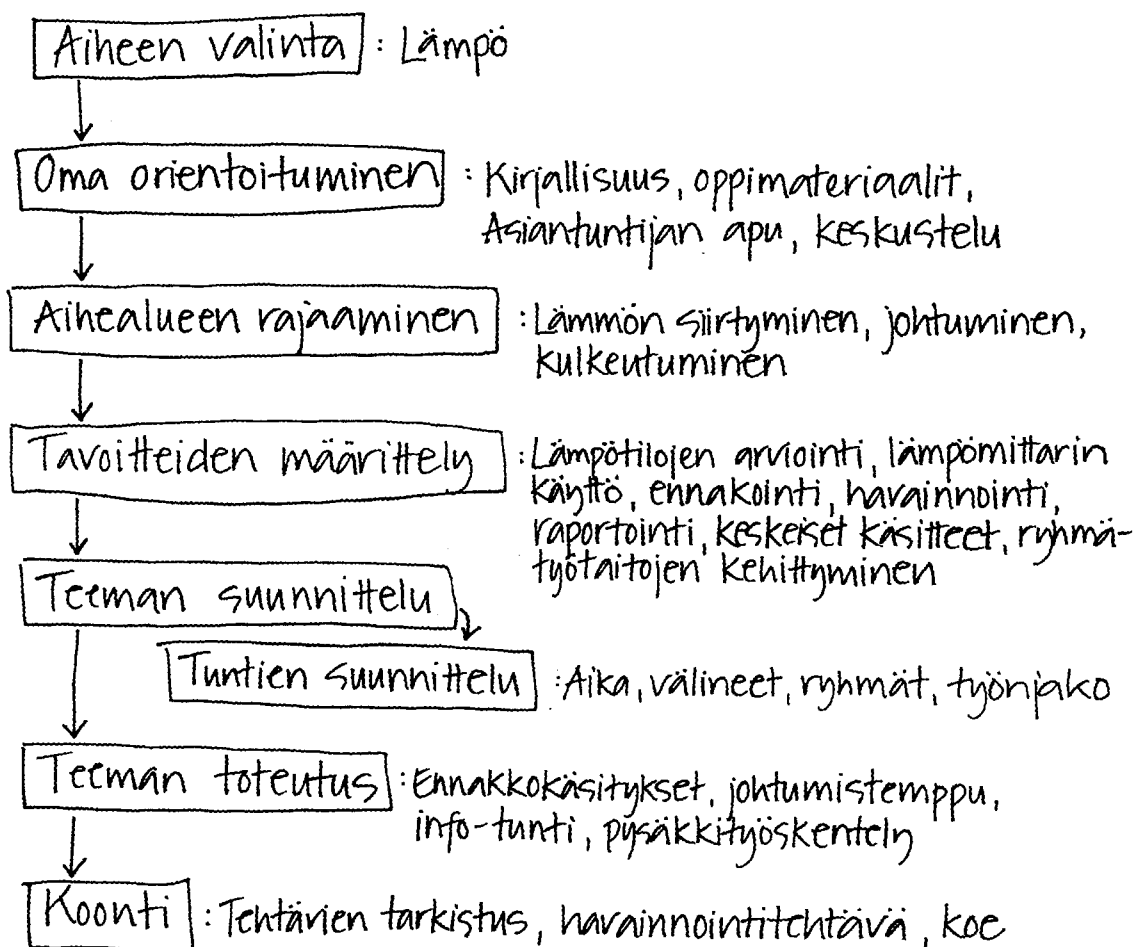 Aiheen valinta : Lämpö
Oma orientoituminen : Kirjallisuus, oppimateriaalit,
Asiantuntijan apu, keskustelu
Aihealueen rajaaminen : Lämmön siirtyminen, johtuminen,
kulkeutuminen
Tavoitteiden määrittely : Lämpötilojen arviointi, lämpömittarin
käyttö, ennakointi, havainnointi,
raportointi, keskeiset käsitteet, ryhmä-
työtaitojen kehittyminen
Teeman suunnittelu
Tuntien suunnittelu : Aika, välineet, ryhmät, työnjako
Teeman toteutus : Ennakkokäsitykset, johtumistemppu,
info-tunti, pysäkkityöskentely
Koonti : Tehtävien tarkistus, havainnointitehtävä, koe